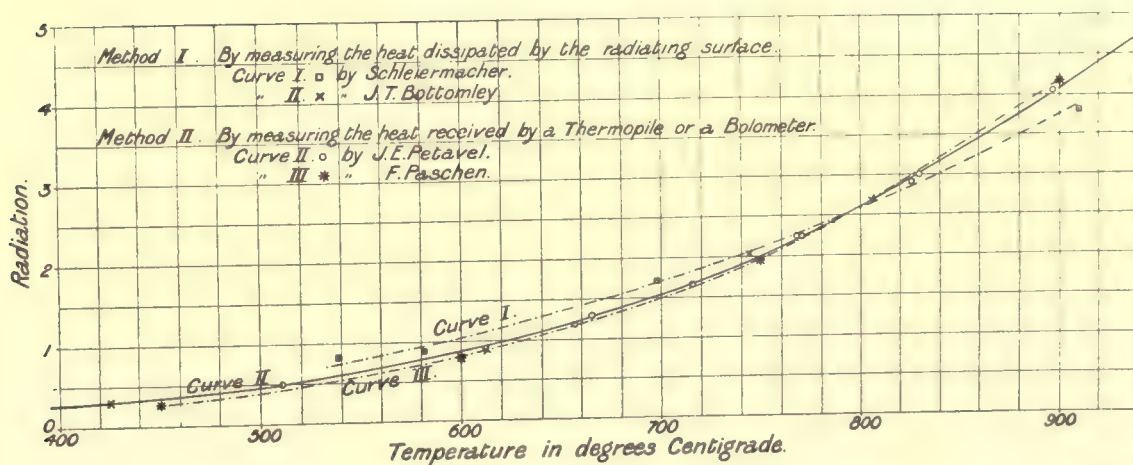 5
4
3
2
1
0
Radiation.
Method I. By measuring the heat dissipated by the radiating surface.
Curve I. □ by Schleiermacher.
„ II. × „ J.T. Bottomley
Method II. By measuring the heat received by a Thermopile or a Bolometer.
Curve II. ○ by J.E. Petavel.
„ III * „ F. Paschen.
Curve I
Curve II
Curve III.
400 500 600 700 800 900
Temperature in degrees Centigrade.